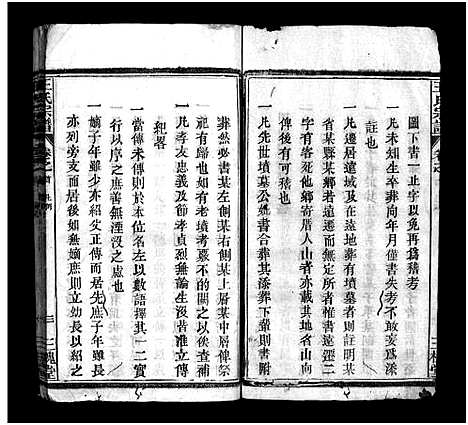 王氏宗譜
卷之
圖下書一止字以免再爲稽考
一凡未知生卒葬向年月僅書失考不敢妄爲添
註也
一凡遷居遠域及在遠地葬有墳墓者則註明某
省某縣某鄉若遠遷而無定所者惟書遠徙二
字有客死他鄉寄厝人山者亦載其地省山向
俾後有可稽也
一凡先世墳墓公媲書合葬某添葬下輩則書附
三槐堂
葬然必書某左側某右側某上層某中層俾祭
祀有歸也如有老墳考墓不的闕之以俟查補
一凡孝友忠義及節孝貞烈無論生沒若准立傳
紀畧
一當傳未傳則於本位名左以數語擇其一二實
行以序之庶善無湮沒之慮也
一嫡子年雖少亦紹父正傳而居先庶子年雖長
亦列旁支而居後如無嫡庶則立幼長以紹之
王氏宗譜
卷之首
凡例
三
三槐堂